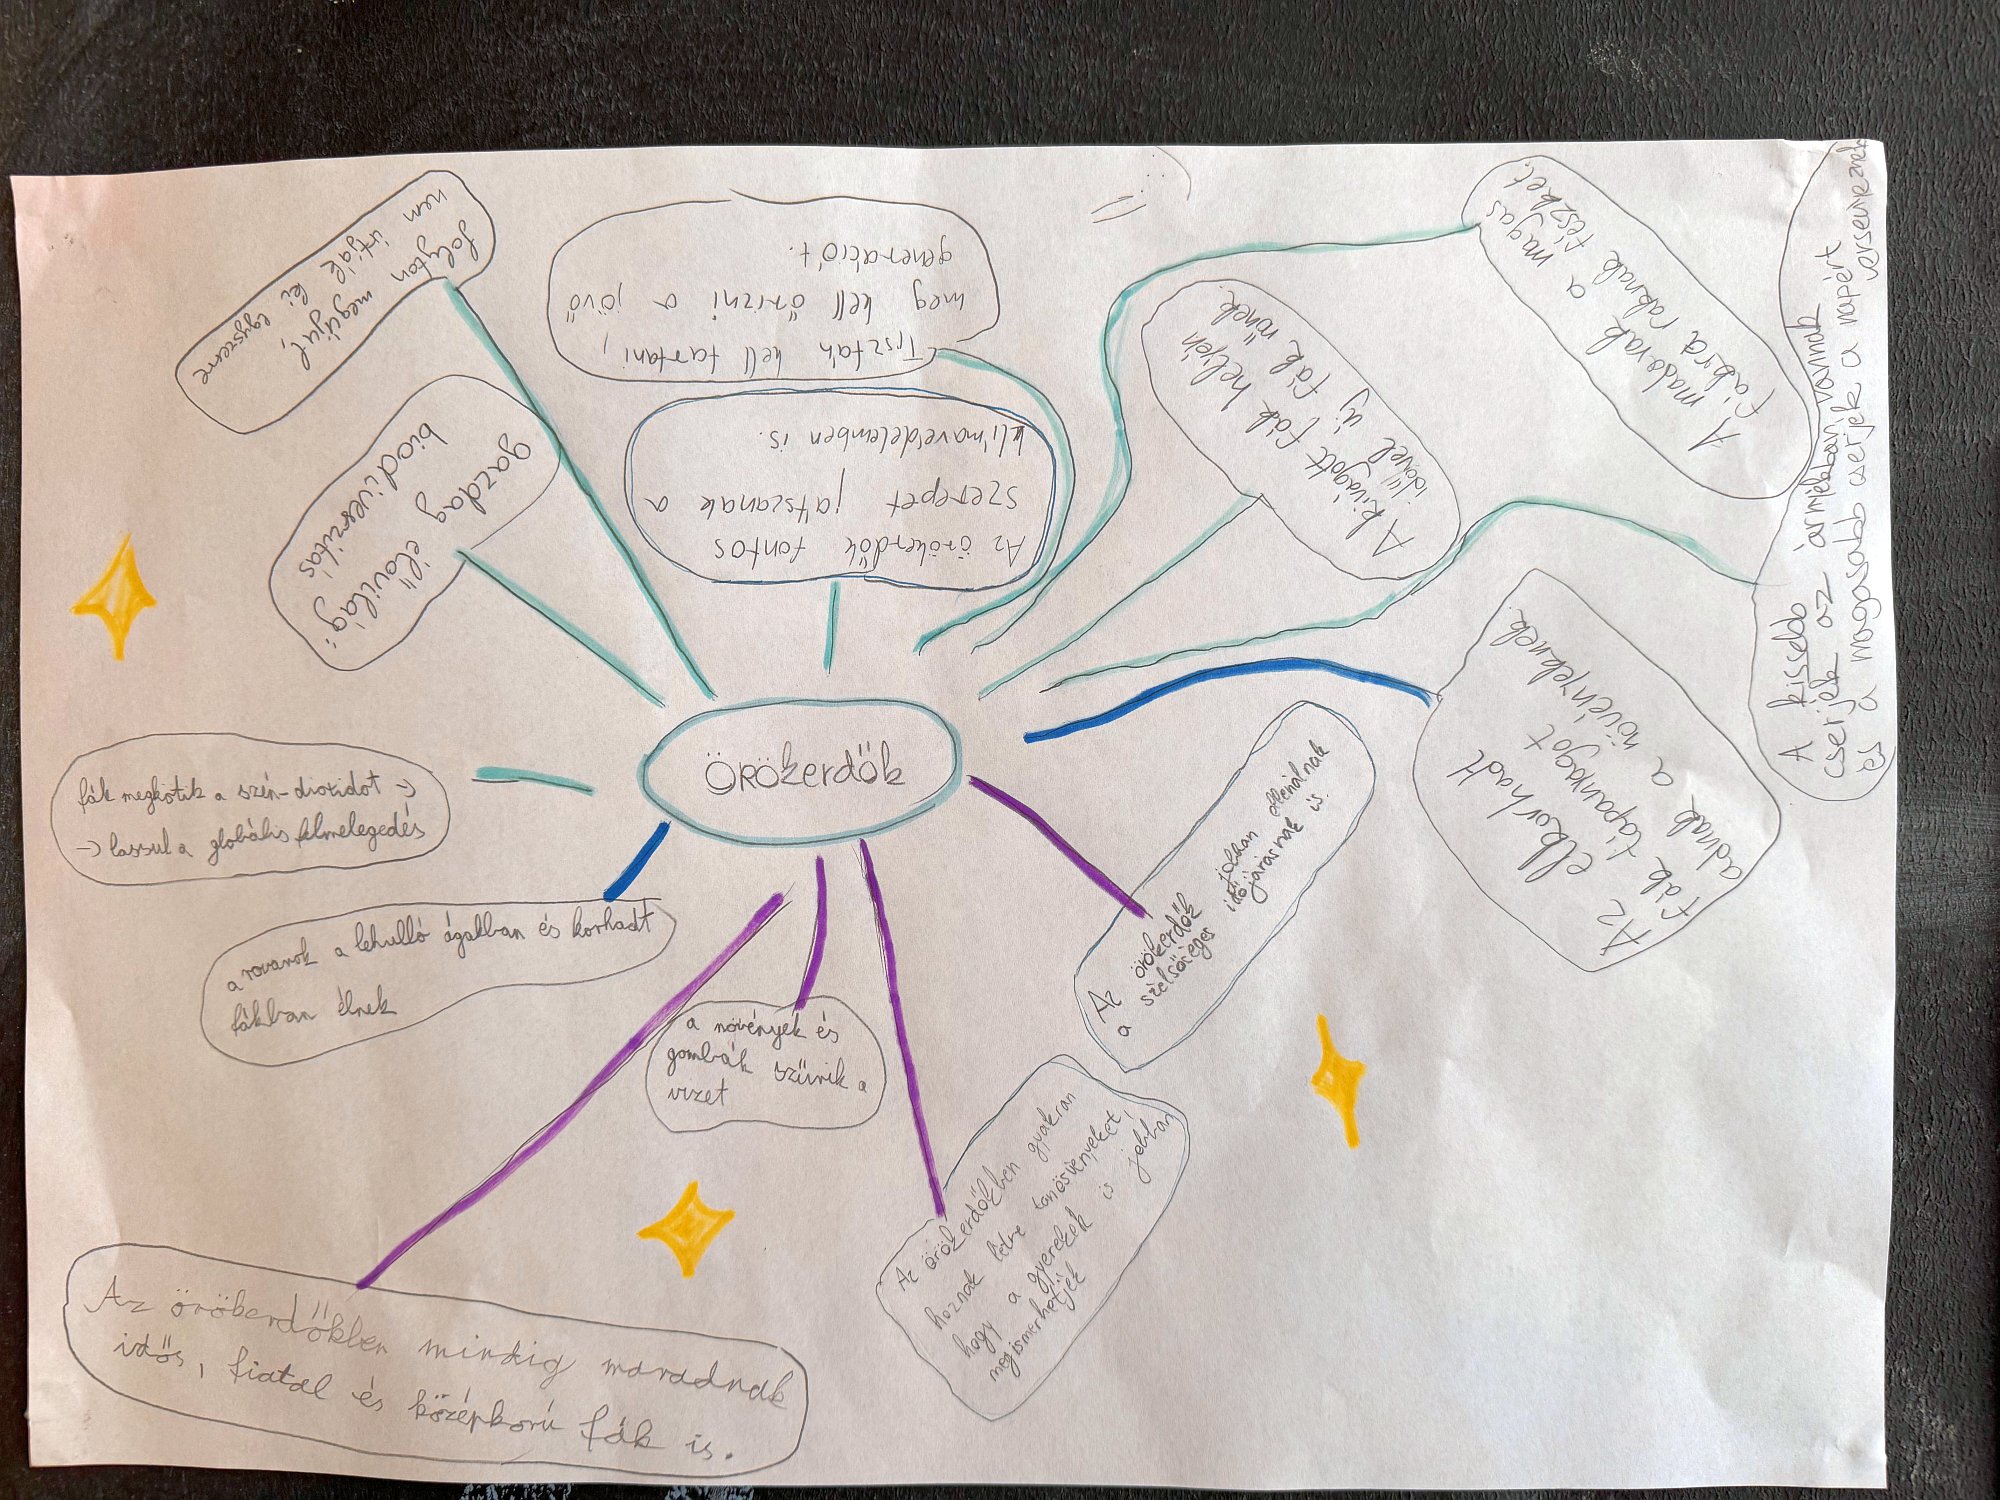 ÖRÖKERDŐK
folyton megújul,
nem irtják ki egyszerre
gazdag élővilág:
biodiverzitás
Tisztán kell tartani,
meg kell őrizni a jövő
generációt.
Az örökerdők fontos
szerepet játszanak a
klímavédelemben is.
A kivágott fák helyén
idővel új fák nőnek.
A madarak a magas
fákra raknak fészket.
A kissebb
cserjék az árnyékban vannak
és a magasabb cserjék a napért
versenyeznek
Az elkorhadt
fák tápanyagot
adnak a növényeknek.
Az örökerdők jobban ellenálnak
a szélsőséges időjárásnak is.
Az örökerdőkben gyakran
hoznak létre tanösvényeket,
hogy a gyerekek is jobban
megismerhetjék
a növények és
gombák szűrik a
vizet
Az örökerdőkben mindig maradnak
idős, fiatal és középkorú fák is.
a rovarok a lehulló ágakban és korhadt
fákban élnek
fák megkötik a szén-dioxidot →
→ lassul a globális felmelegedés